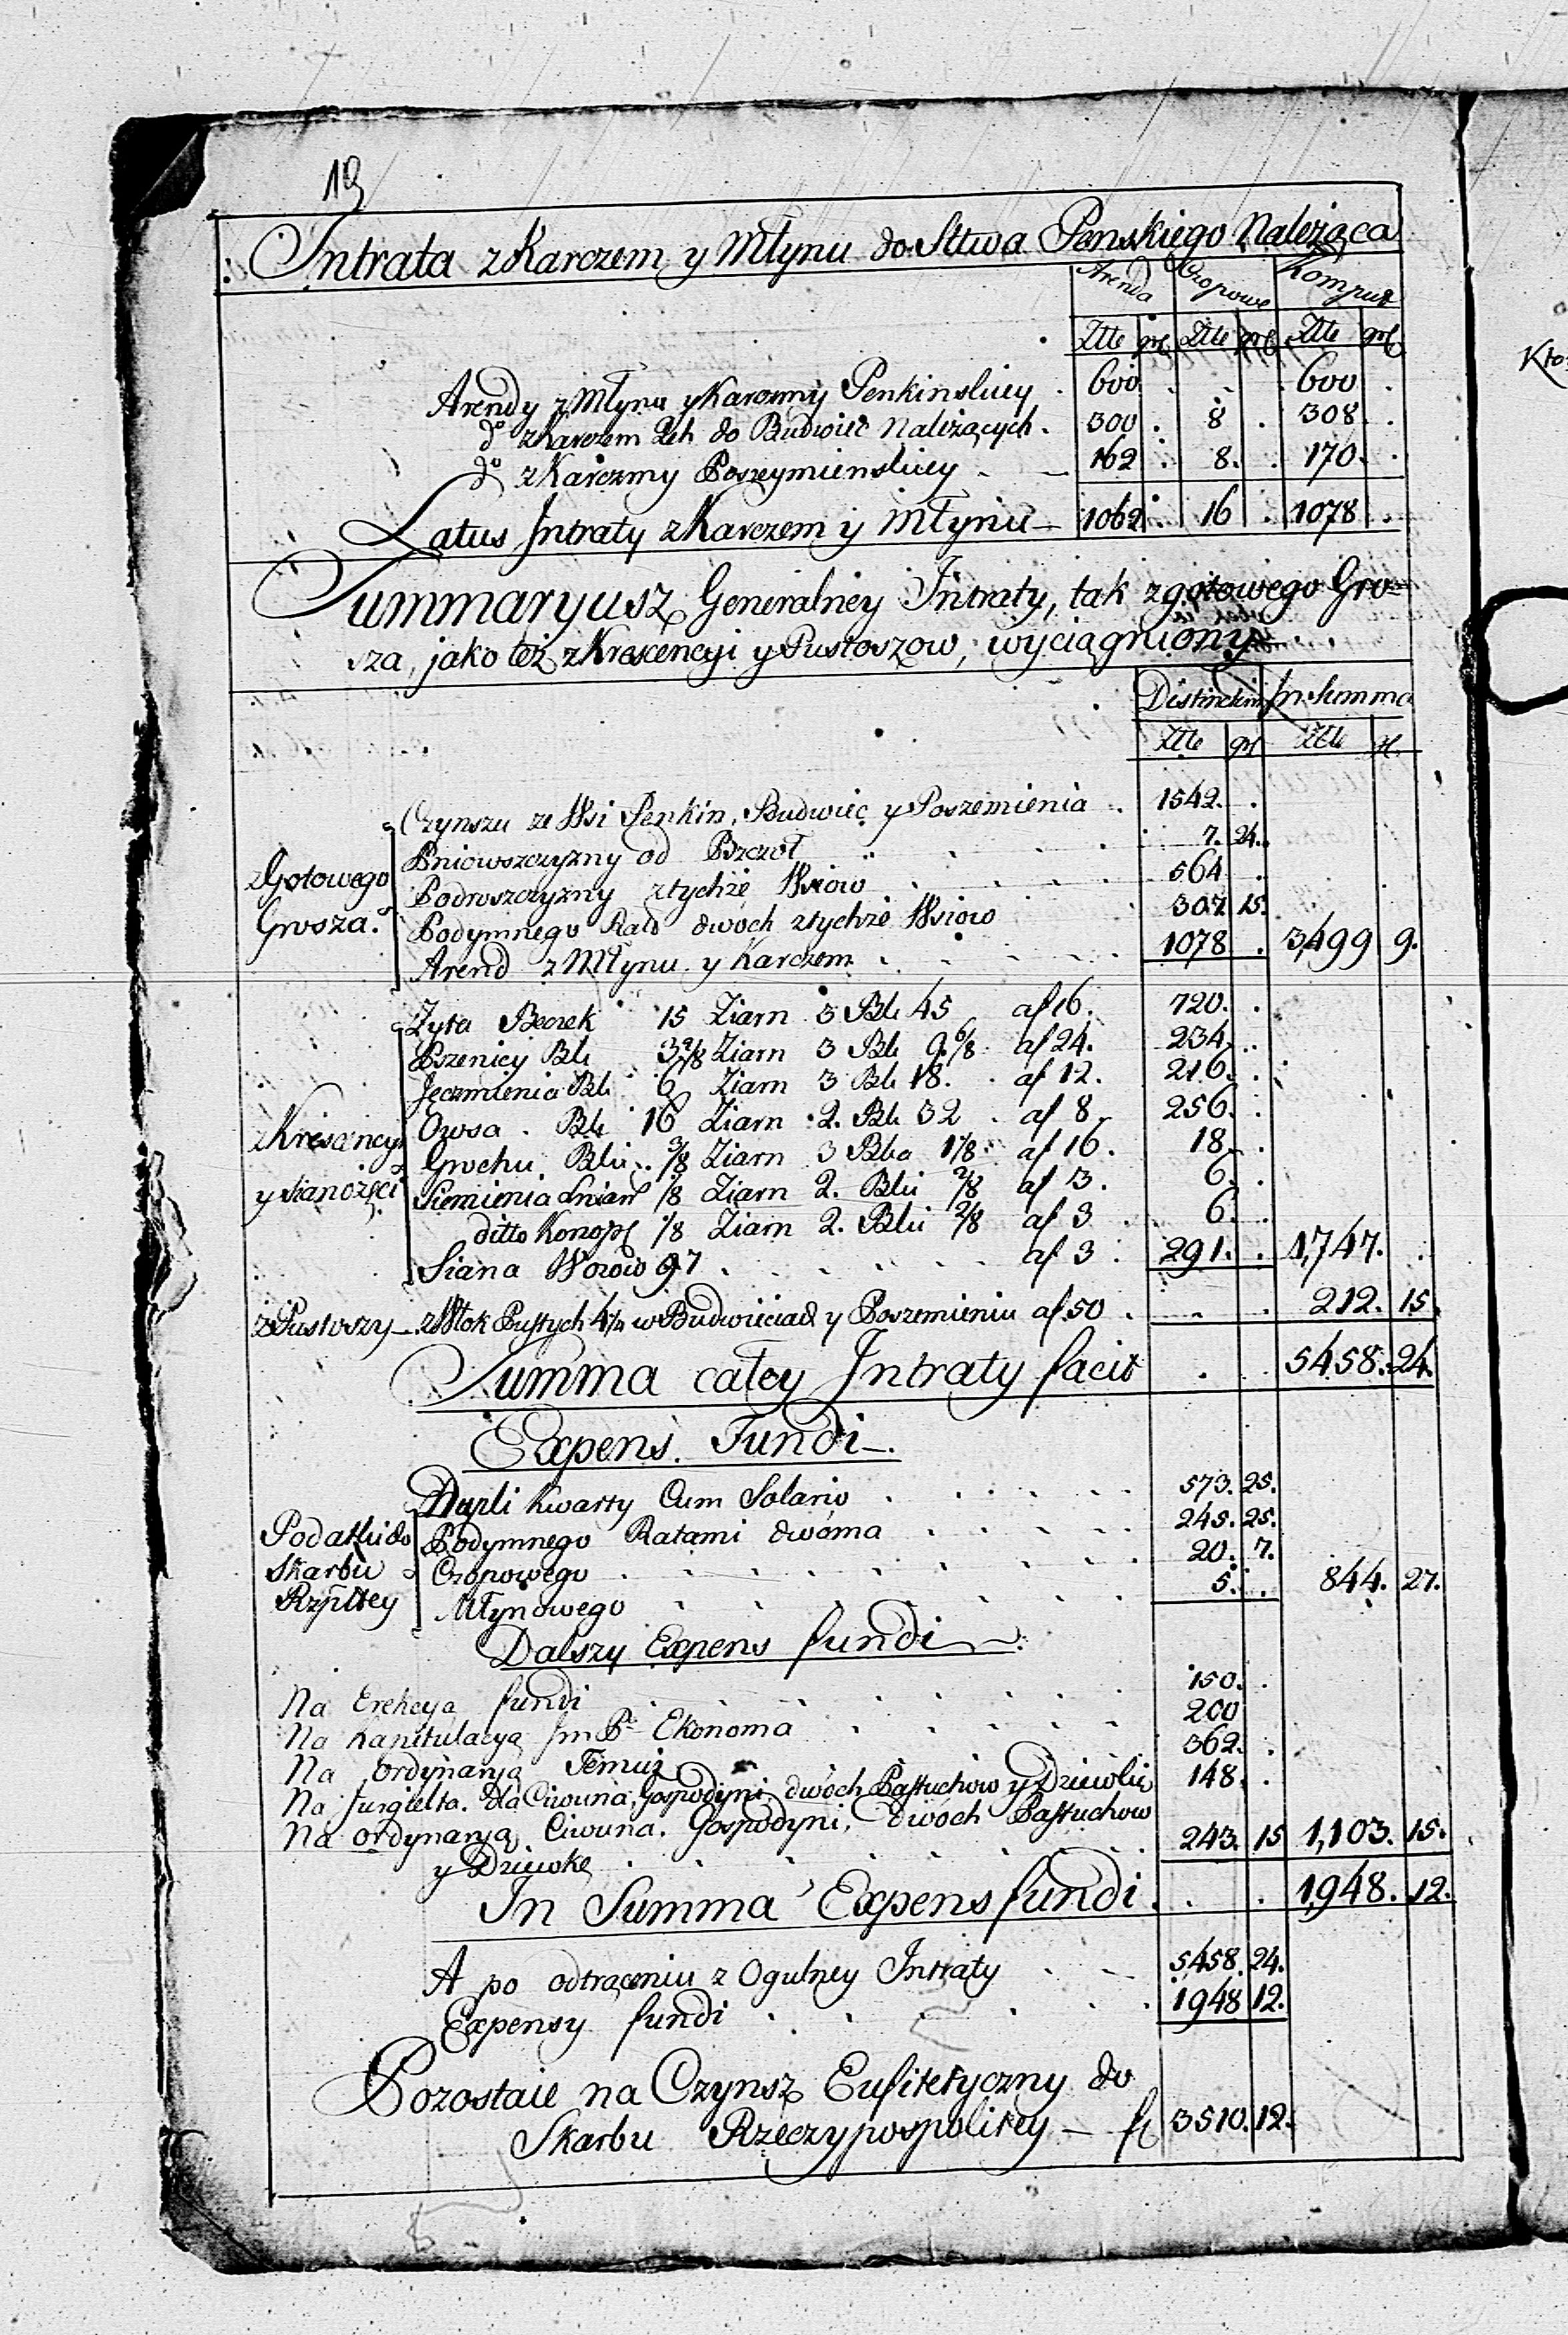 19
Intrata z Karczem y Młynu do Sttwa Penskiego Należąca
Arenda Czopowe Komput
Ztte grl Ztte grl Ztte grl
Arendy z Młyna y Karczmy Penkinskiey . 600 . . . 600 .
do z Karczem 2ch do Budwieć Należących . 300 . 8 . 308 .
do z Karczmy Poszeymienskiey . – 162 . 8 . 170 .
Latus Intraty z Karczem y Młynu – 1062 . 16 . 1078 .
Summaryusz Generalney Intraty, tak z gotowego Gro=
sza, jako też z Krescencyi y Pustoszow, wyciągniony
Distinctim In Summa
Zttt grl Zttt gl
z Gotowego Grosza.
Czynszu ze Wsi Penkin, Budwiec y Poszemienia . 1542. .
Pniowszczyzny od Pszczoł . . . . 7. 24.
Podroszczyzny z tychże Wsiow . . . . 564 .
Podymnego Rat dwoch z tychże Wsiow 307 15.
Arend z Młynu y Karczem . . . . 1078 . 3499 9.
z Krescencyi y sianożęci
Zyta Beczek 15 Ziarn 3 Bli 45 af 16. 720. .
Pszenicy Bli 3 2/8 Ziarn 3 Bli 9. 6/8 af 24. 234. .
Jęczmienia Bli 6 Ziarn 3 Bli 18. af 12. 216. .
Owsa . Bli 16 Ziarn 2. Bli 32 . af 8. 256. .
Grochu Bli . 3/8 Ziarn 3 Bla 1 1/8 af 16. 18. .
Siemienia Lnian 1/8 Ziarn 2. Bli 2/8 af 3. 6. .
ditto Konopl 1/8 Ziarn 2. Bli 2/8 af 3 6. .
Siana Wozow 97 . . . . . af 3 . 291. . 1,747. .
z Pustoszy – z Włok Pustych 4 1/4 w Budwieciach y Poszemieniu af 50 . . . 212. 15.
Summa całey Intraty facit . . 5458. 24.
Expens. Fundi –.
Podatki do Skarbu Rzpltey
Dupli Kwarty Cum Solario . . . . 573. 25.
Podymnego Ratami dwoma . . . . 245. 25.
Czopowego . . . . . . 20. 7.
Młynowego . . . . . . 5. . 844. 27.
Dalszy Expens fundi
Na Erekcyą fundi . . . . . . 150. .
Na Kapitulacyą Jm Pa Ekonoma . . . . 200
Na ordynaryą Temuż 362. .
Na Jurgielta. dla Ciwuna, Gospodyni. dwoch Pastuchow y Dziewki 148. .
Na ordynaryą Ciwuna. Gospodyni, dwoch Pastuchow
y Dziewkę . . . . . . 243. 15 1,103. 15.
In Summa Expens fundi . . . 1,948. 12.
A po odtrąceniu z Ogulney Intraty . – 5458. 24.
Expensy fundi . . . . . 1948 12.
Pozostaie na Czynsz Eufitetyczny do
Skarbu Rzeczypospolitey – fl 3510. 12.